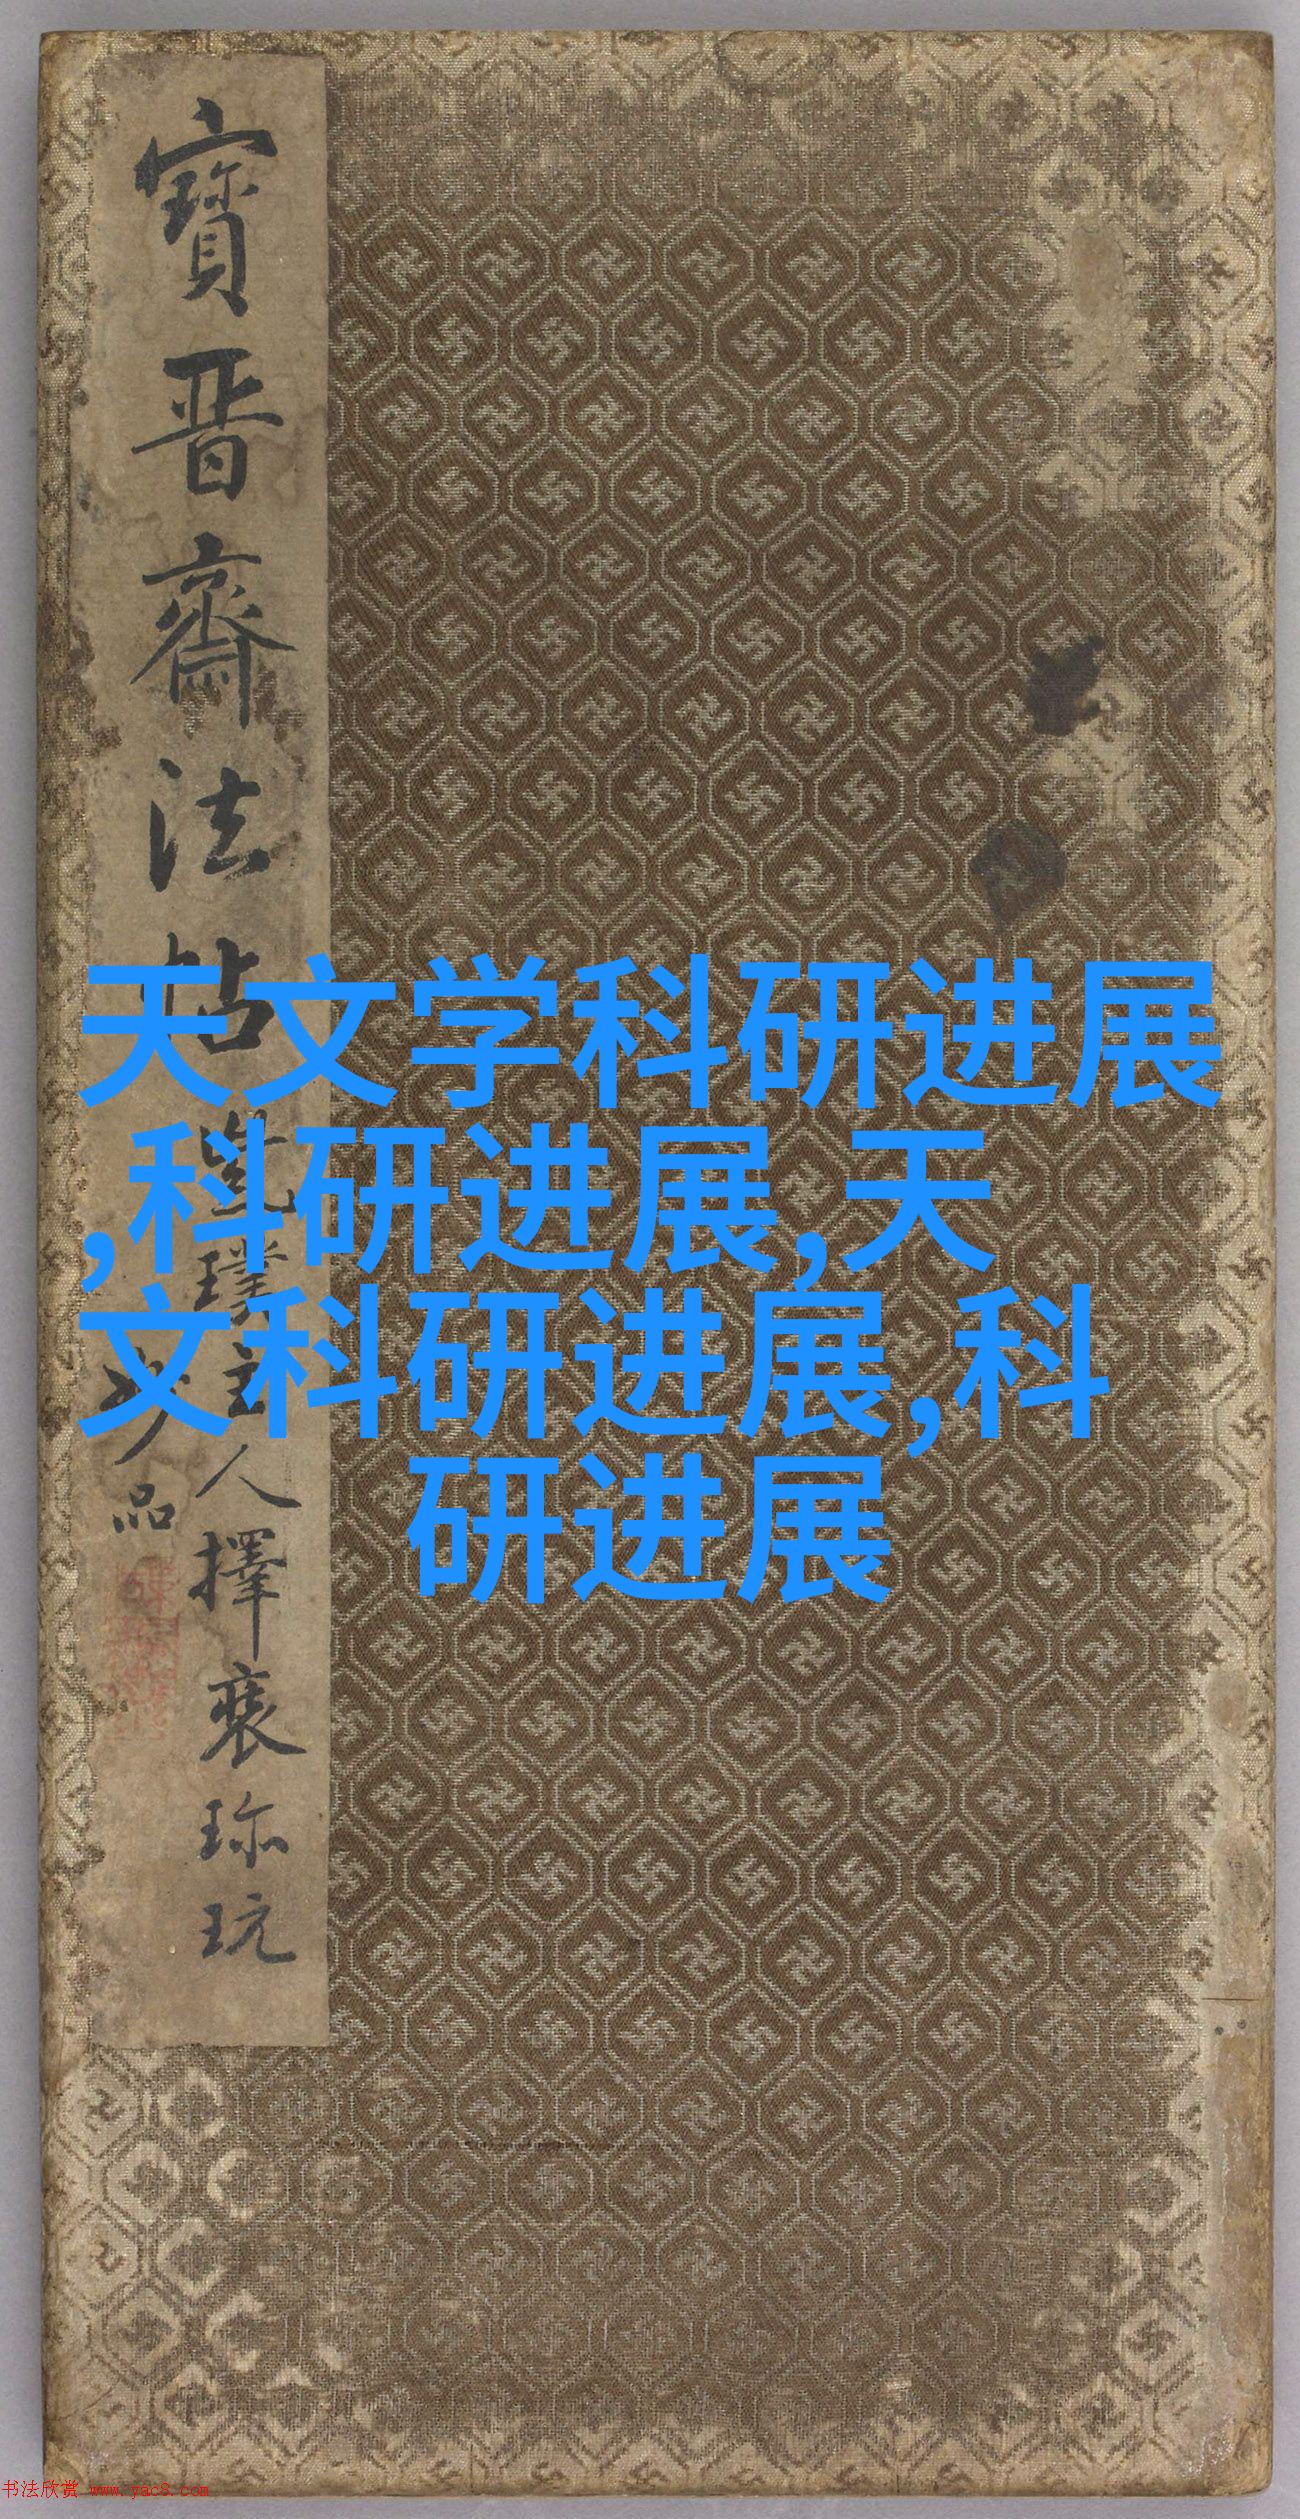 寳晋齋法帖
璞主人擇裘珎玩
品
天文学科研进展
,科研进展,天
文科研进展,科
研进展
书法欣赏 www.yac8.com